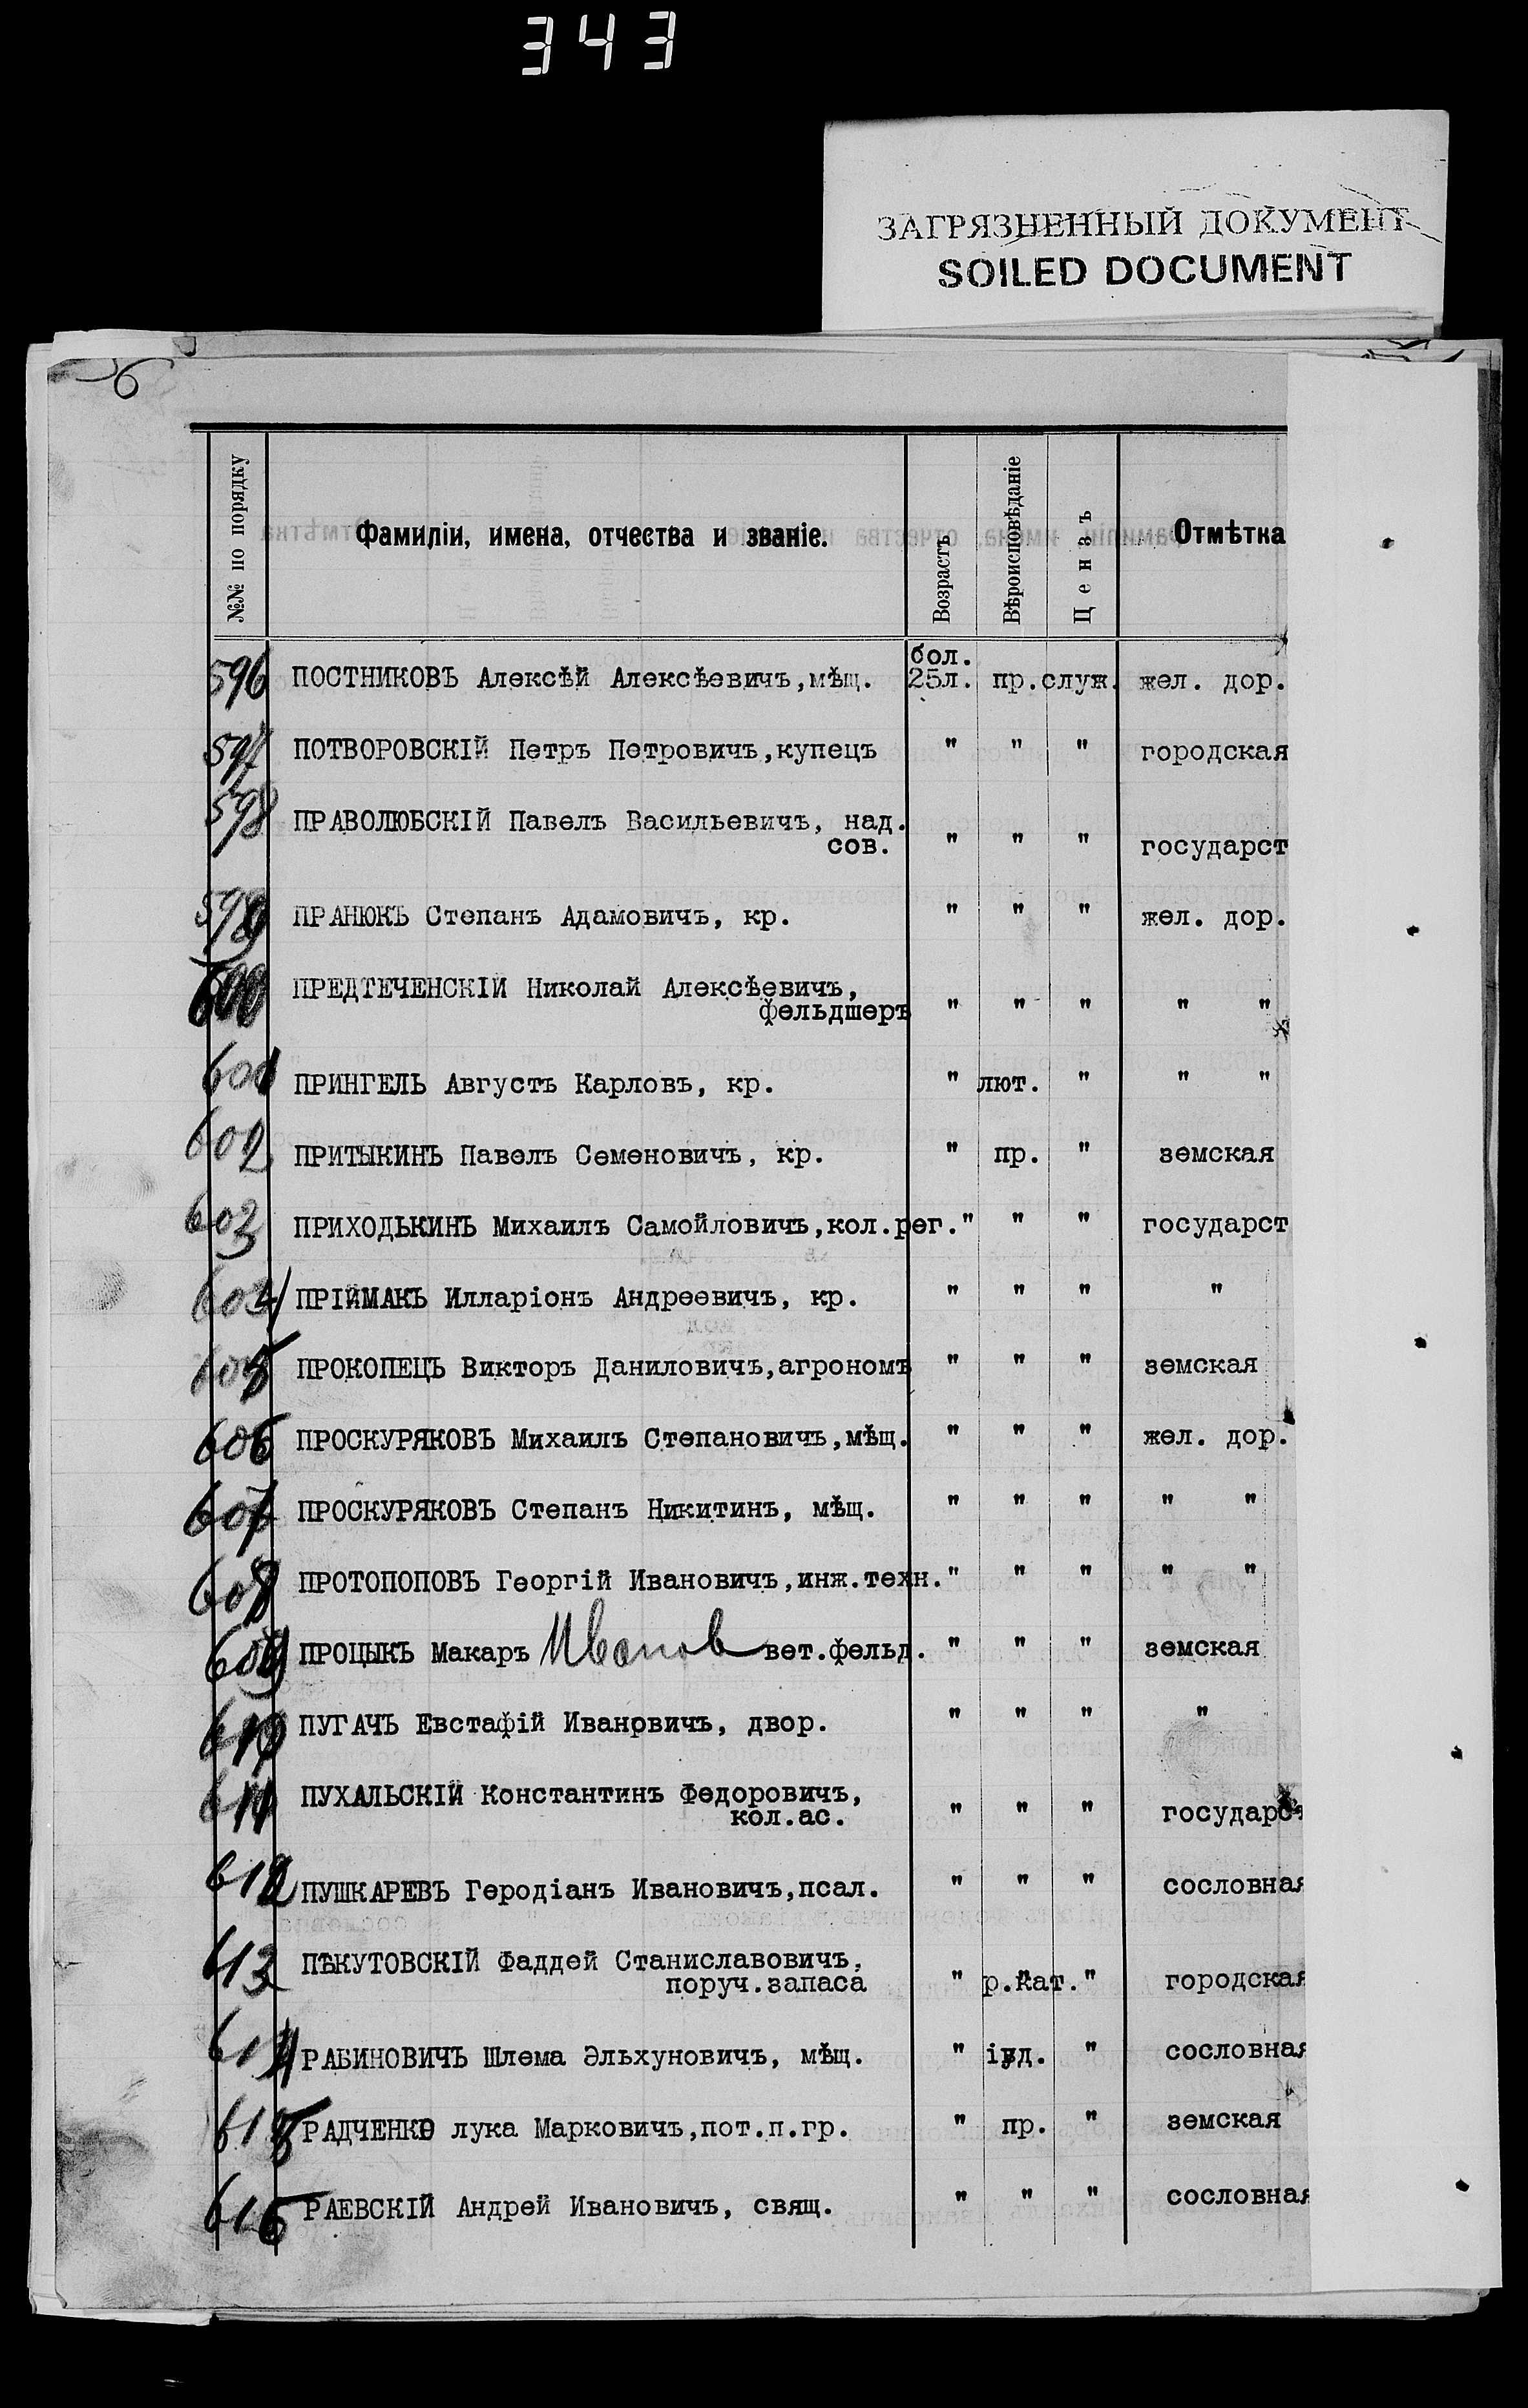 343
ЗАГРЯЗНЕННЫЙ ДОКУМЕНТ
SOILED DOCUMENT
№№ по порядку Фамиліи, имена, отчества и званіе. Возрастъ Вѣроисповѣданіе Цензъ Отмѣтка
бол.
596 ПОСТНИКОВЪ Алексѣй Алексѣевичъ,мѣщ. 25л. пр.служ. жел. дор.
597 ПОТВОРОВСКІЙ Петръ Петровичъ,купецъ " " " городская
598 ПРАВОЛЮБСКІЙ Павелъ Васильевичъ, над.
сов. " " " государст
599 ПРАНЮКЪ Степанъ Адамовичъ, кр. " " " жел. дор.
600 ПРЕДТЕЧЕНСКІЙ Николай Алексѣевичъ,
фельдшеръ " " " " "
601 ПРИНГЕЛЬ Августъ Карловъ, кр. " лют. " " "
602 ПРИТЫКИНЪ Павелъ Семеновичъ, кр. " пр. " земская
603 ПРИХОДЬКИНЪ Михаилъ Самойловичъ,кол.рег." " " государст
604 ПРІЙМАКЪ Илларіонъ Андреевичъ, кр. " " " "
605 ПРОКОПЕЦЪ Викторъ Даниловичъ,агрономъ " " " земская
606 ПРОСКУРЯКОВЪ Михаилъ Степановичъ,мѣщ. " " " жел. дор.
607 ПРОСКУРЯКОВЪ Степанъ Никитинъ, мѣщ. " " " " "
608 ПРОТОПОПОВЪ Георгій Ивановичъ,инж.техн." " " " "
609 ПРОЦЫКЪ Макаръ Иванов вет.фельд. " " " земская
610 ПУГАЧЪ Евстафій Ивановичъ, двор. " " " "
611 ПУХАЛЬСКІЙ Константинъ Федоровичъ,
кол.ас. " " " государст
612 ПУШКАРЕВЪ Геродіанъ Ивановичъ,псал. " " " сословная
613 ПѢКУТОВСКІЙ Фаддей Станиславовичъ,
поруч.запаса " р.кат." городская
614 РАБИНОВИЧЪ Шлема Эльхуновичъ, мѣщ. " іуд. " сословная
615 РАДЧЕНКО лука Марковичъ,пот.п.гр. " пр. " земская
616 РАЕВСКІЙ Андрей Ивановичъ, свящ. " " " сословная